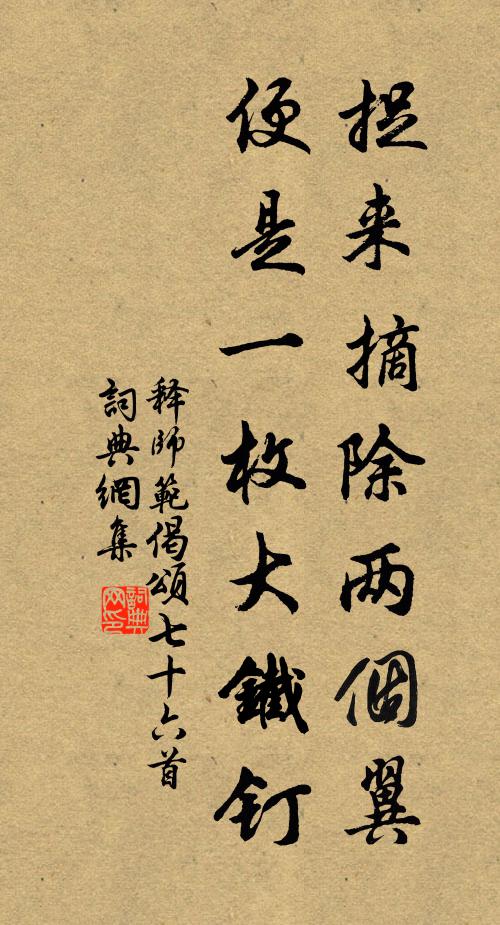 捉来摘除两個翼
便是一枚大鐵釘
释師範偈頌七十六首
詞典網集
詞典
网印